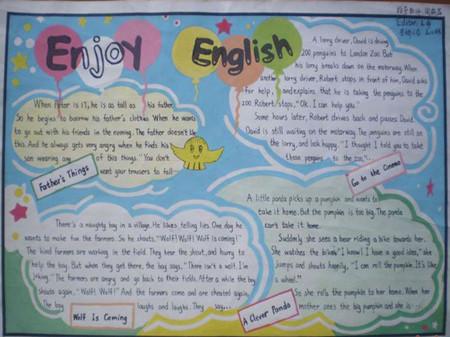 Enjoy English
When Peter is 17, he is as tall as his father.
So he begins to borrow his father's clothes When he wants
to go out with his friends in the evening. The father doesn't like
this. And he always gets very angry when he finds his
son wearing any of this things. "You don't
want your trousers to fall
Father's Things
A lorry driver, David is driving
200 penguins to London Zoo. But
his lorry breaks down on the motorway. When
another lorry driver, Robert stops in front of him, David asks
for help, and explains that he is taking the penguins to
the zoo. Robert stops, "Ok. I can help you."
Some hours later, Robert drives back and passes David.
David is still waiting on the motorway. The penguins are still on
the lorry, and look happy. "I thought I told you to take
those penguins to the zoo."
Go to the Cinema
There's a naughty boy in a village. He likes telling lies. One day he
wants to make fun the farmers. So he shouts, "Wolf! Wolf! Wolf is coming!"
The kind farmers are working in the field. They hear the shout, and hurry to
help the boy. But when they get there, the boy says, "There isn't a wolf. I'm
joking." The farmers are angry and go back to their fields. After a while the boy
shouts again, "Wolf! Wolf!" And the farmers come and are cheated again.
The boy laughs and laughs. They say
Wolf Is Coming
A little panda picks up a pumpkin and wants to
take it home. But the pumpkin is too big. The panda
can't take it home.
Suddenly she sees a bear riding a bike towards her.
She watches the bike. "I know! I have a good idea," she
jumps and shouts happily, "I can roll the pumpkin. It's like
a wheel."
So she rolls the pumpkin to her home. When her
mother sees the big pumpkin and she is
A Clever Panda